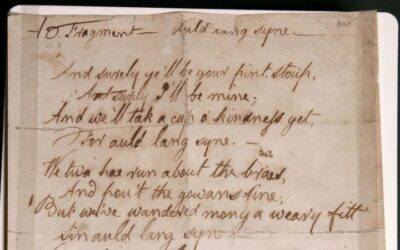 A Fragment — Auld lang syne — 307
And surely ye'll be your pint stoup,
And surely I'll be mine;
And we'll tak a cup o kindness yet,
For auld lang syne. —
We twa hae run about the braes,
And pou't the gowans fine;
But we've wandered mony a weary fitt
Sin auld lang syne